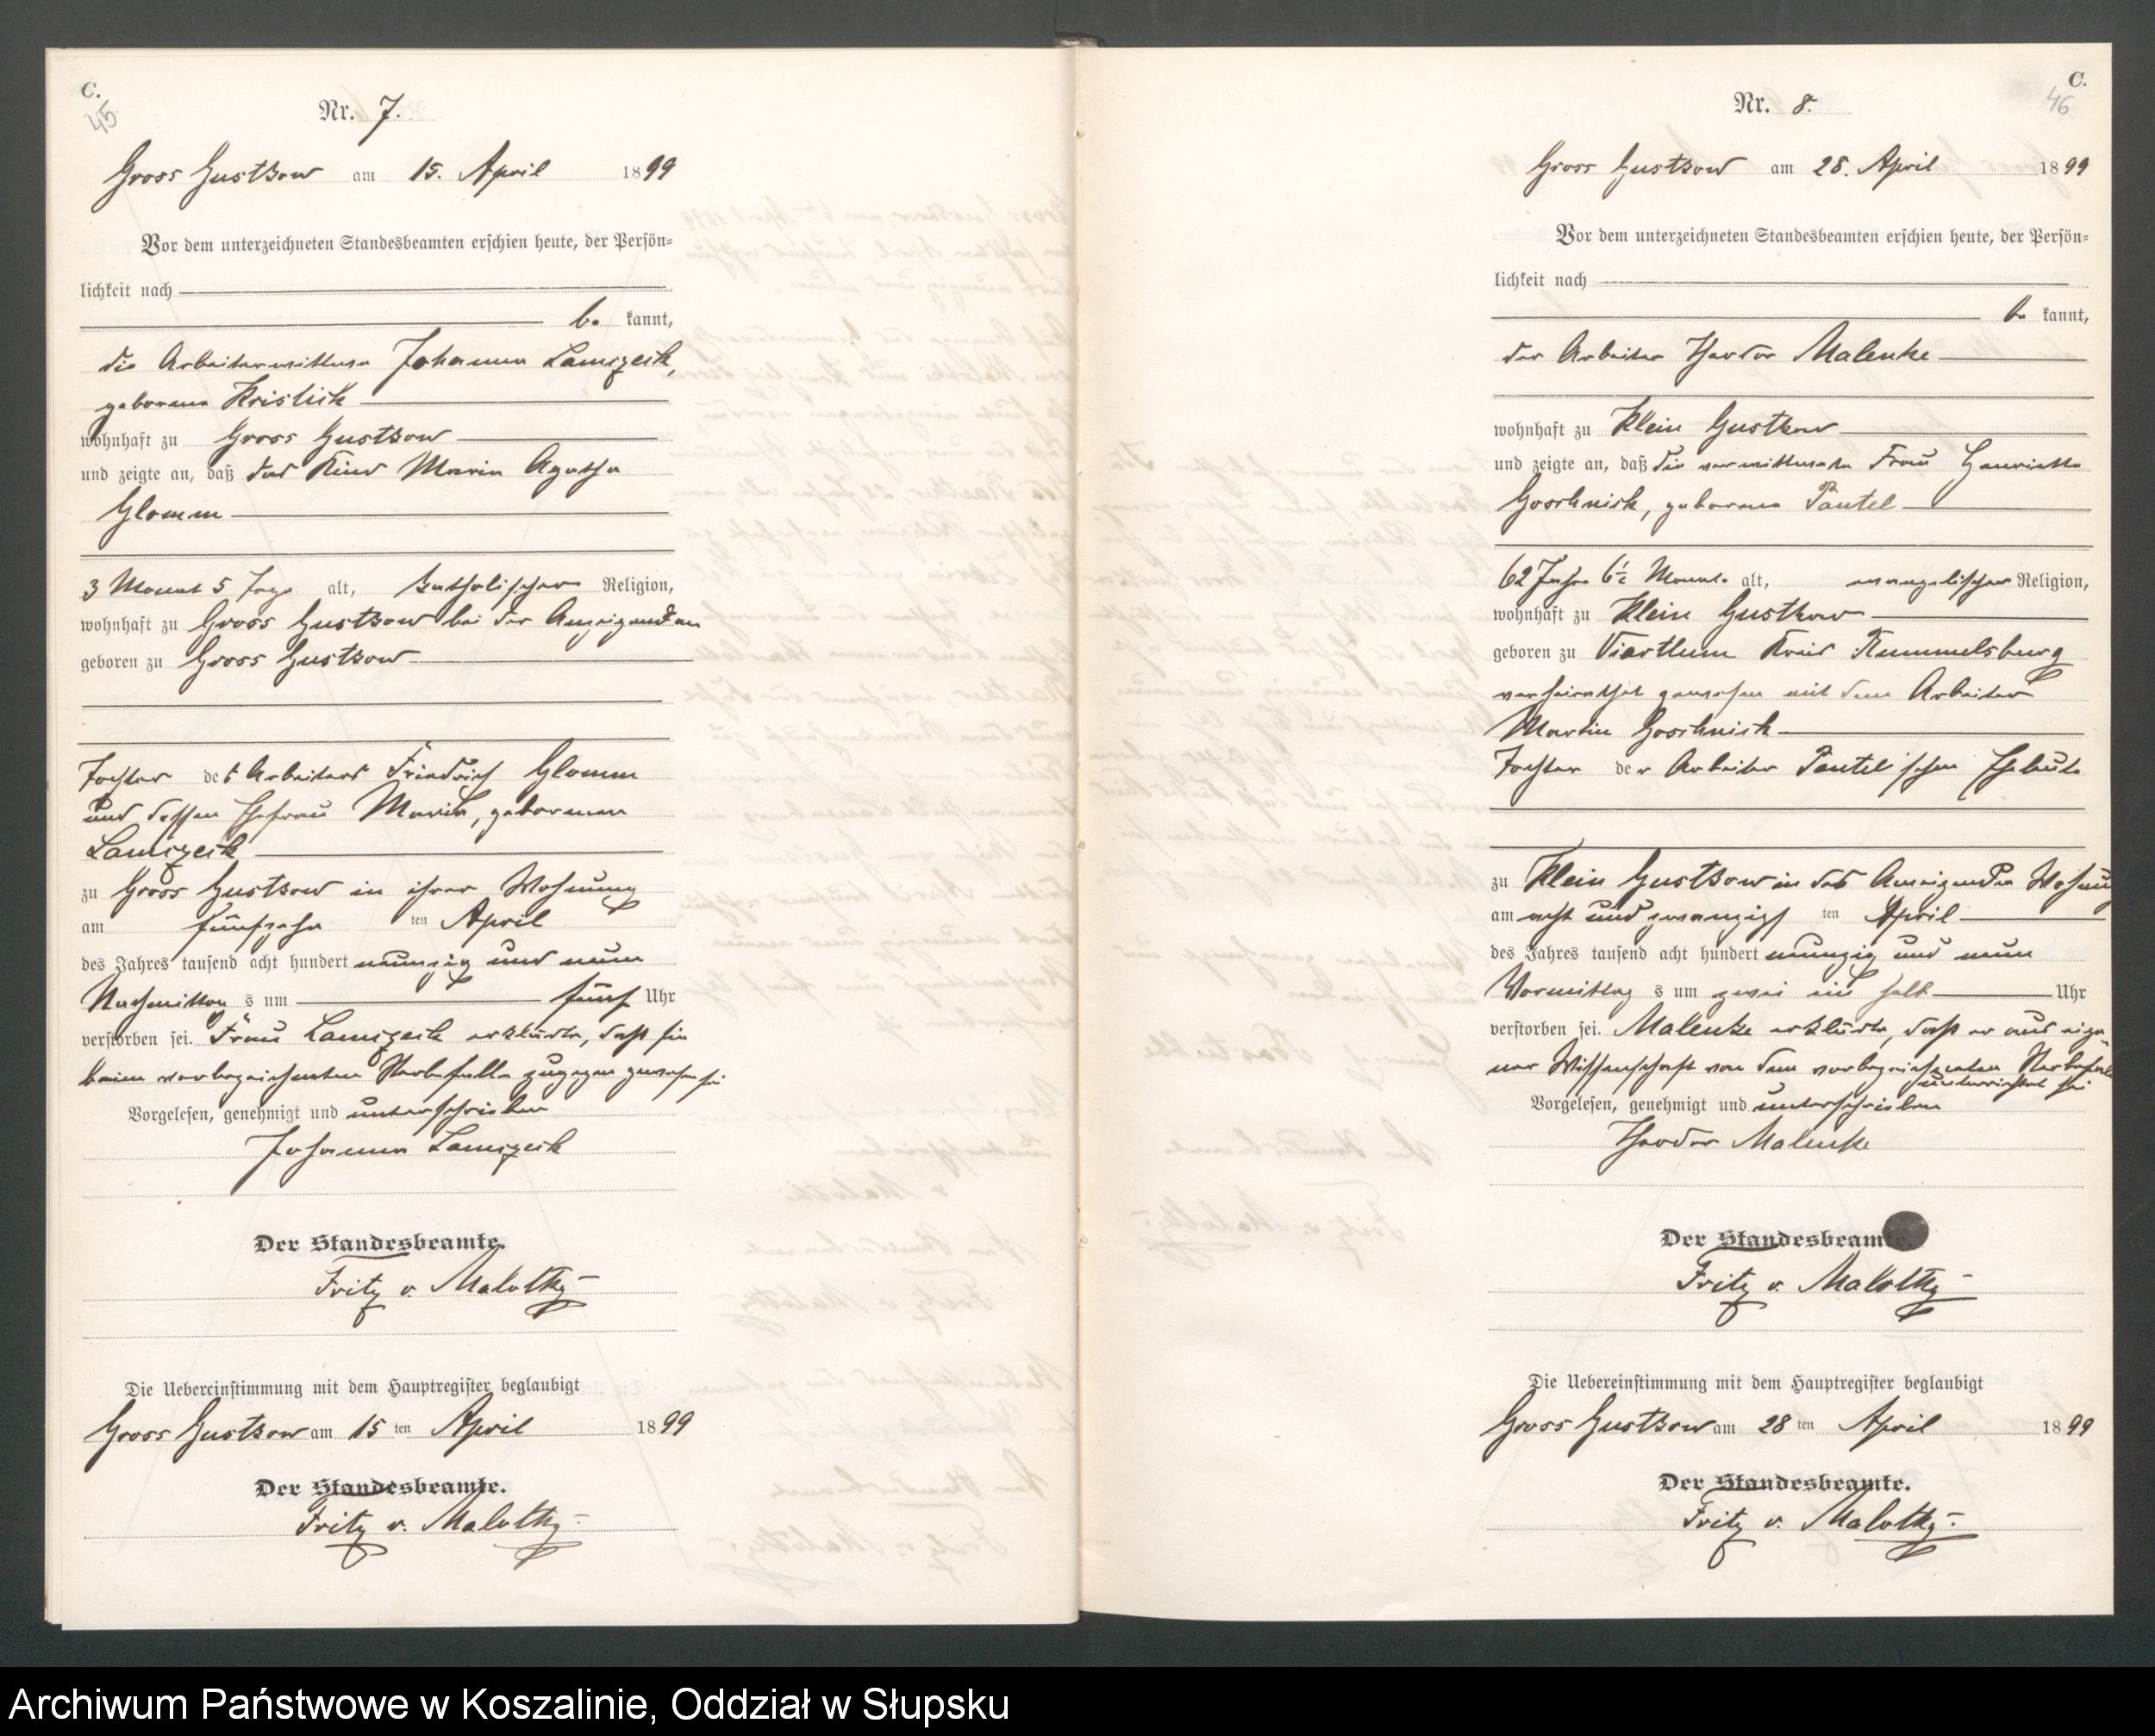 C.
45
Nr. 7.
Gross Gustkow am 15. April 1899
Vor dem unterzeichneten Standesbeamten erschien heute, der Persön=
lichkeit nach
be kannt,
die Arbeiterwittwe Johanna Lamczeck,
geborene Kristick
wohnhaft zu Gross Gustkow
und zeigte an, daß das Kind Maria Agatha
Glomm
3 Monat 5 Tage alt, katholischer Religion,
wohnhaft zu Gross Gustkow bei der Anzeigenden
geboren zu Gross Gustkow
Tochter des Arbeiters Friedrich Glomm
und dessen Ehefrau Maria, geborenen
Lamczeck
zu Gross Gustkow in ihrer Wohnung
am fünfzehn ten April
des Jahres tausend acht hundert neunzig und neun
Nachmittag s um fünf Uhr
verstorben sei. Frau Lamczeck erklärte, daß sie
beim vorbezeichneten Sterbefalle zugegen gewesen sei
Vorgelesen, genehmigt und unterschrieben
Johanna Lamczeck
Der Standesbeamte.
Fritz v. Malottky
Die Uebereinstimmung mit dem Hauptregister beglaubigt
Gross Gustkow am 15 ten April 1899
Der Standesbeamte.
Fritz v. Malottky
C.
46
Nr. 8.
Gross Gustkow am 28. April 1899
Vor dem unterzeichneten Standesbeamten erschien heute, der Persön=
lichkeit nach
be kannt,
der Arbeiter Theodor Malenke
wohnhaft zu Klein Gustkow
und zeigte an, daß die verwittwete Frau Henriette
Goschnick, geborene Pautel
62 Jahre 6½ Monat alt, evangelischer Religion,
wohnhaft zu Klein Gustkow
geboren zu Viartlum Kreis Rummelsburg
verheirathet gewesen mit dem Arbeiter
Martin Goschnick
Tochter der Arbeiter Pautel'schen Eheleute
zu Klein Gustkow in des Anzeigenden Wohnung
am acht und zwanzig ten April
des Jahres tausend acht hundert neunzig und neun
Vormittag s um zwei ein halb Uhr
verstorben sei. Malenke erklärte, daß er aus eige=
ner Wissenschaft von dem vorbezeichneten Sterbefall
unterrichtet sei
Vorgelesen, genehmigt und unterschrieben
Theodor Malenke
Der Standesbeamte.
Fritz v. Malottky
Die Uebereinstimmung mit dem Hauptregister beglaubigt
Gross Gustkow am 28 ten April 1899
Der Standesbeamte.
Fritz v. Malottky
Archiwum Państwowe w Koszalinie, Oddział w Słupsku